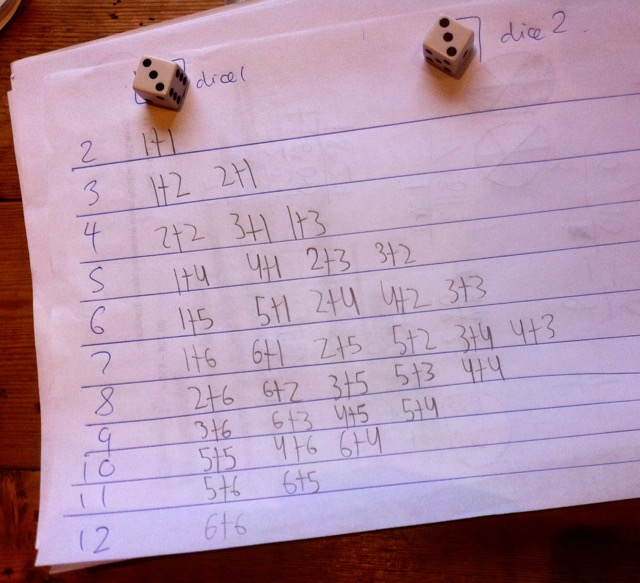 dice 1
dice 2
2 1+1
3 1+2 2+1
4 2+2 3+1 1+3
5 1+4 4+1 2+3 3+2
6 1+5 5+1 2+4 4+2 3+3
7 1+6 6+1 2+5 5+2 3+4 4+3
8 2+6 6+2 3+5 5+3 4+4
9 3+6 6+3 4+5 5+4
10 5+5 4+6 6+4
11 5+6 6+5
12 6+6